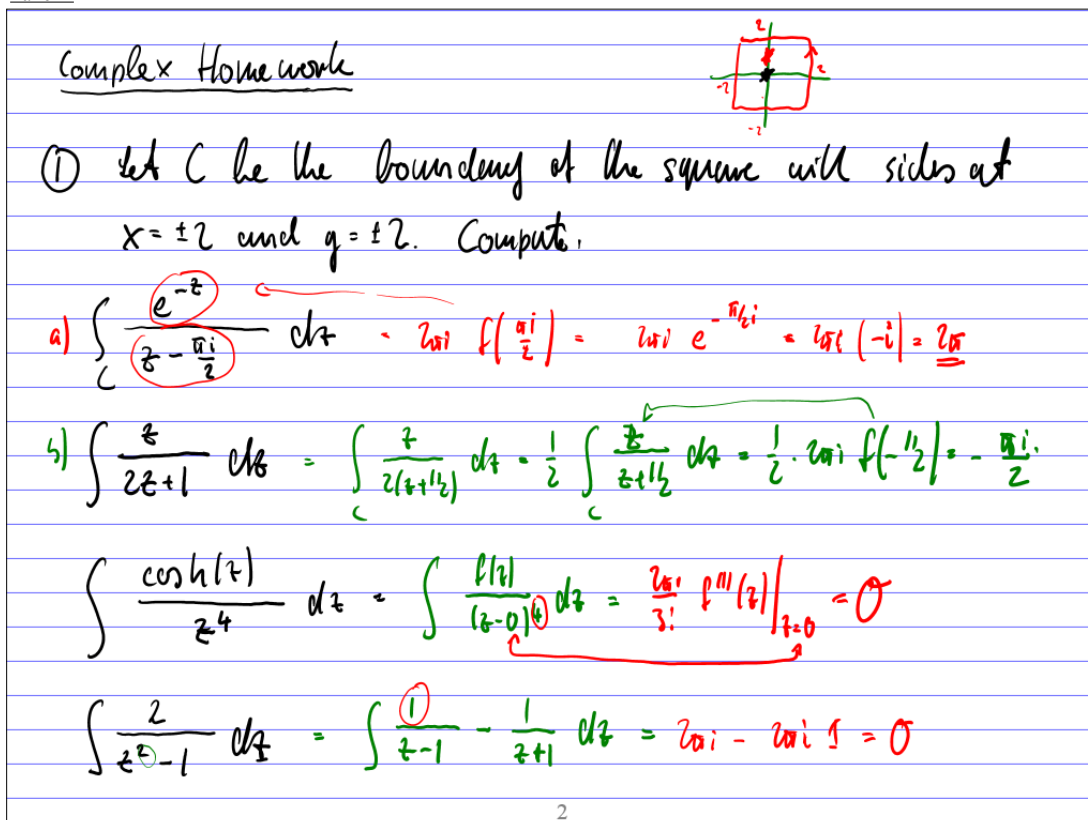 Complex Homework
2
-2
2
-2
① Let C be the boundary of the square will sides at
x = ±2 and y = ±2. Compute.
a) ∫_C e^{-z} / (z - πi/2) dz = 2πi f(πi/2) = 2πi e^{-π/2 i} = 2πi (-i) = 2π
b) ∫ z / (2z+1) dz = ∫_C z / (2(z+1/2)) dz = 1/2 ∫_C z / (z+1/2) dz = 1/2 · 2πi f(-1/2) = - πi/2.
∫ cosh(z) / z^4 dz = ∫ f(z) / (z-0)^4 dz = 2πi/3! f'''(z) |_{z=0} = 0
∫ 2 / (z^2 - 1) dz = ∫ 1/(z-1) - 1/(z+1) dz = 2πi - 2πi 1 = 0
2